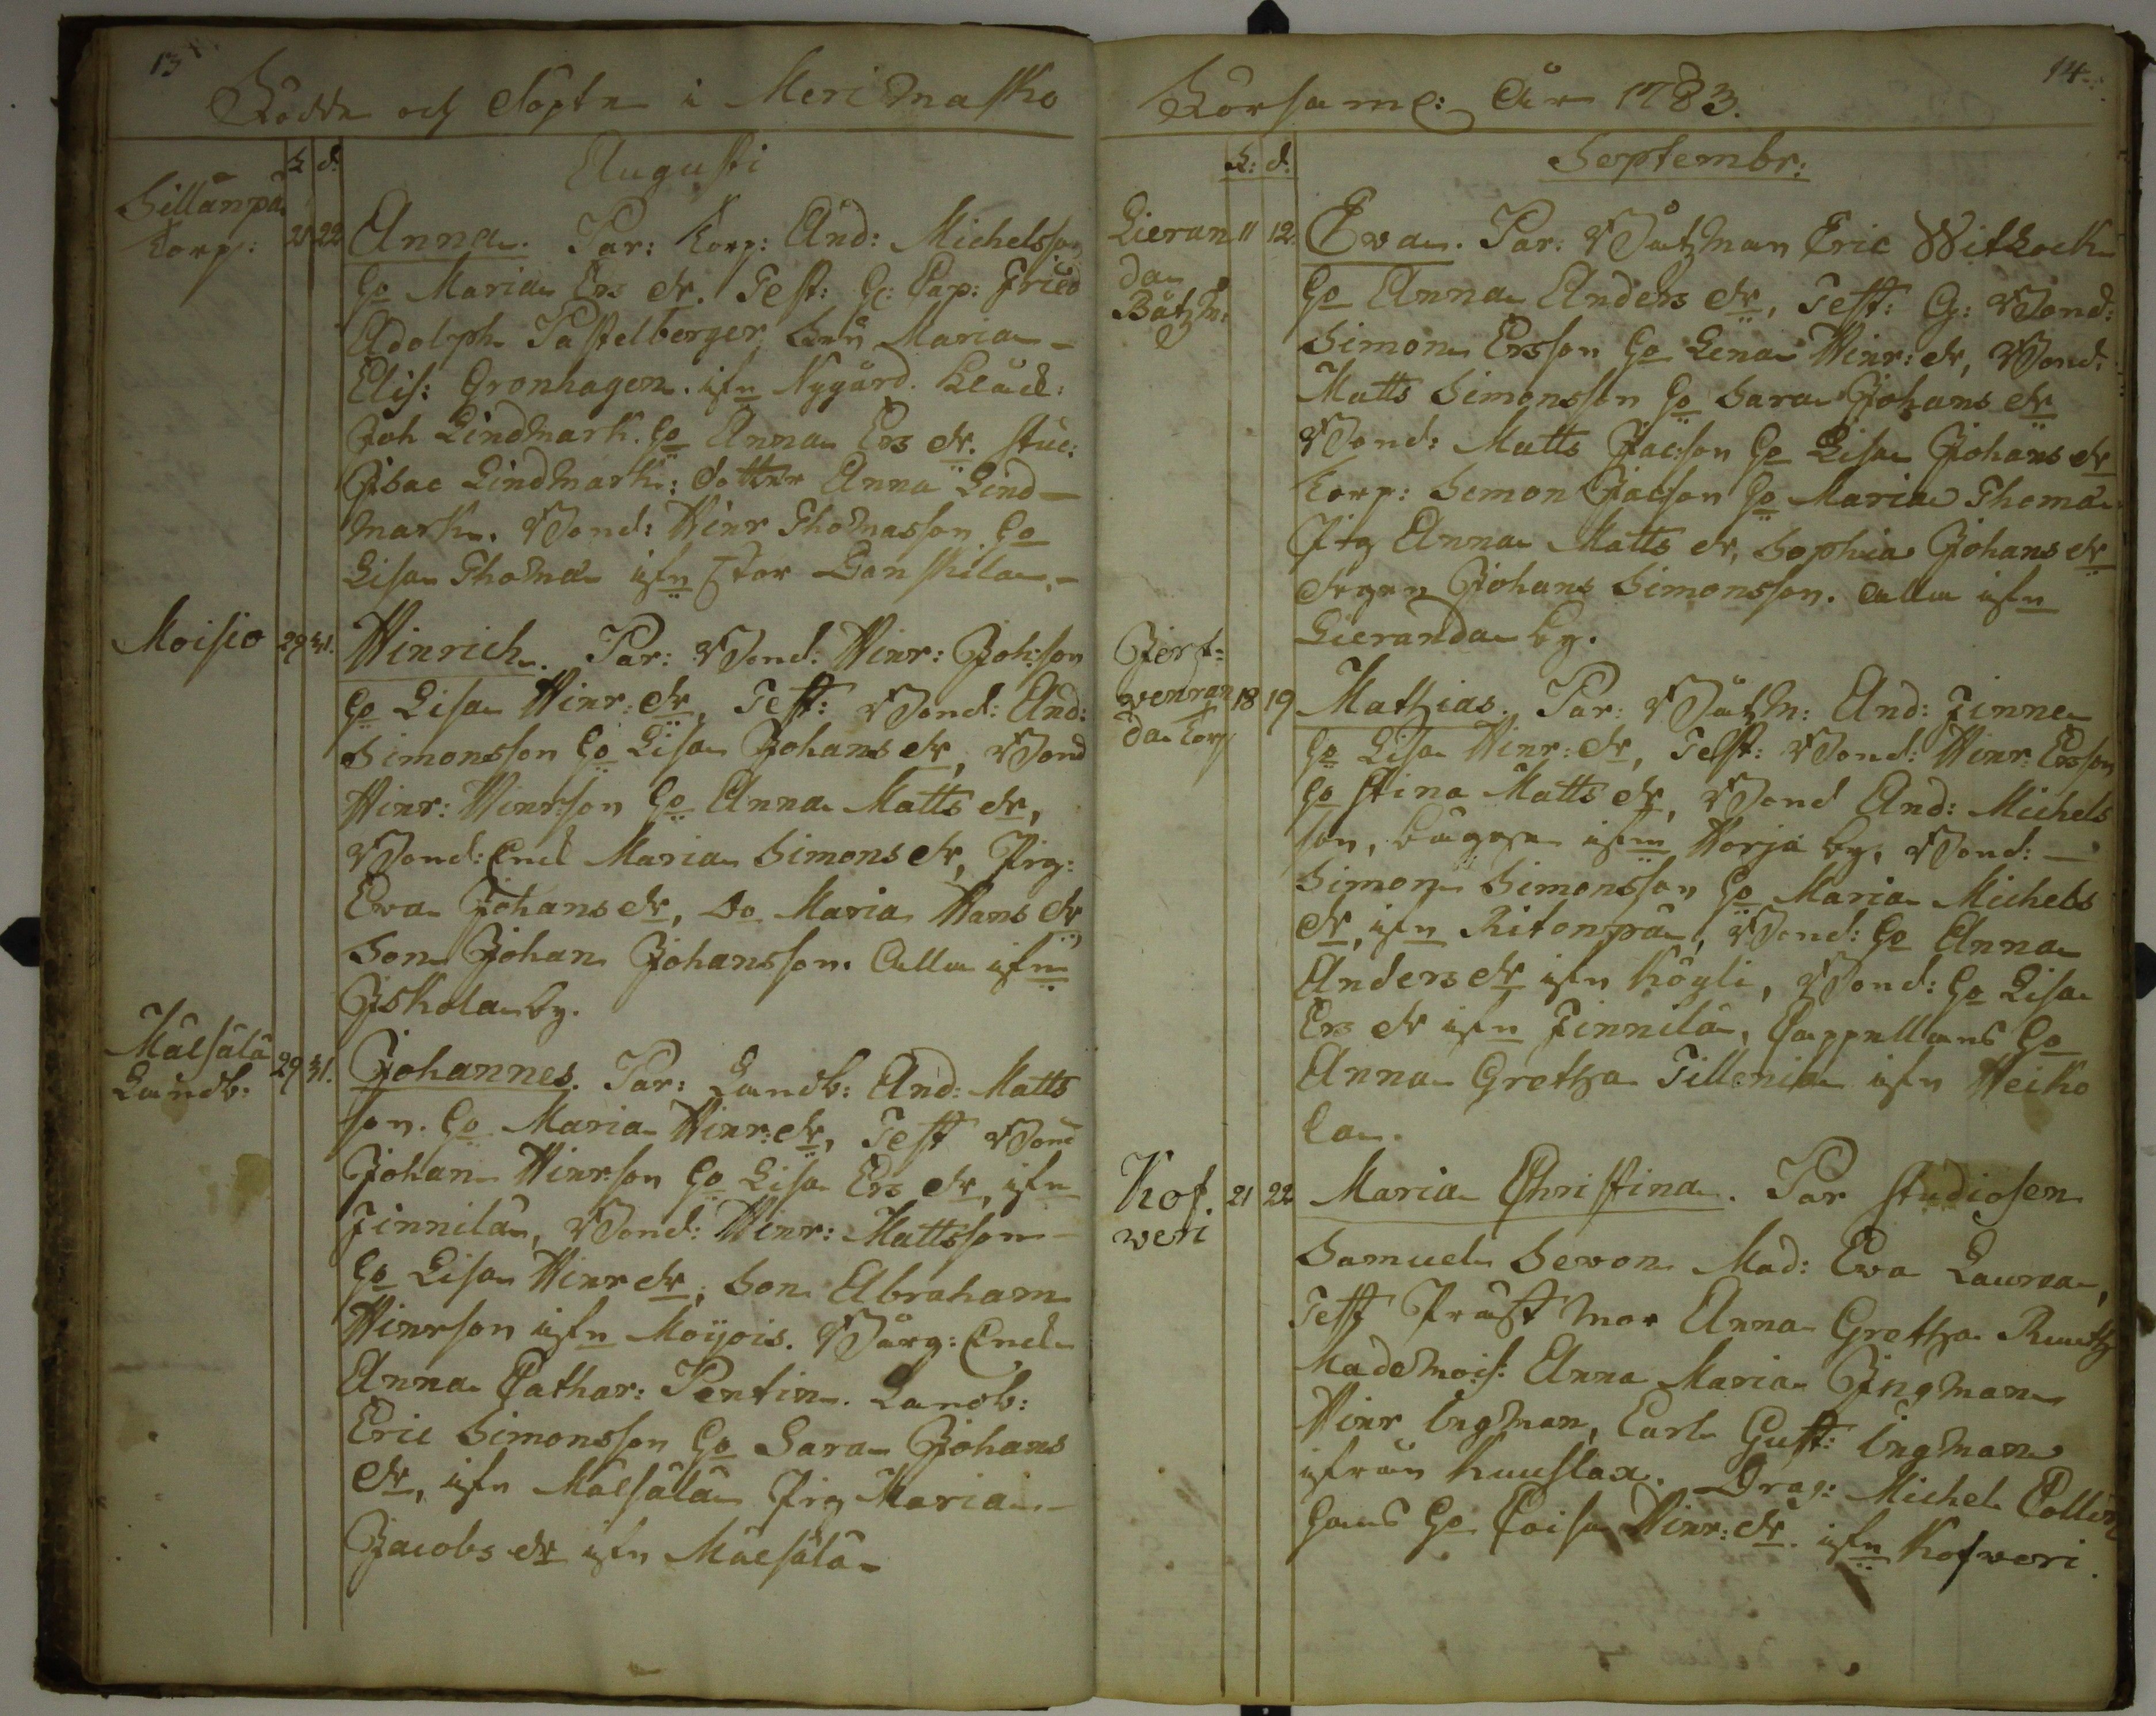 13
Födde och döpte i Merimasko
F d:
Augusti
Sillanpä
Korp: 21 22 Anna. Par: Korp: And: Michelsson
Ho Maria Ers dr. Test: H: Cap: Fried
Adolph Pastelberger, Maria
Elis: Gronhagen. ifrn Nygård. Klåck:
Joh Lindmark. Ho Anna Ers dr. stud:
Isac Lindmark: dotter Anna Lind-
mark. Bond: Hinr Thomasson Ho
Lisa Thomæ ifrn Stor
Moisio 29 31. Hinrich. Par: Bond. Hinr: Joh:son
Ho Lisa Hinr: dr, Test: Bond: And:
Simonsson Ho Lisa Johans dr, Bond
Hinr: Hinrson Ho Anna Matts dr,
Bond: Enck Maria Simons dr, Pig:
Eva Johans dr, Do Maria Hans dr
Son Johan Johansson. Alla ifrn
Iskola by.
Mälsälä
Landb: 29 31. Johannes. Par: Landb: And: Matts
son. Ho Maria Hinr: dr, Test Bond
Johan Hinrson Ho Lisa Ers dr, ifrn
Finnilä, Bond: Hinr: Mattsson
Ho Lisa Hinr dr, Son Abraham
Hinrson ifrn Moijois. Bårg: Enck
Anna Cathar: Pentin. Landb:
Eric Simonsson Ho Sara Johans
dr, ifrn Mälsälä Pig Maria
Jacobs dr ifrn Mälsälä
14
Församl: År 1783.
F: d:
Septembr:
Lieran 11 12. Eva. Par: Båtzman Eric Witkock
da
Båtzm: Ho Anna Anders dr, Test: H: Bond:
Simon Ersson Ho Lena Hinr: dr, Bond:
Matts Simonsson Ho Sara Johans dr
Bond: Matts Jacson Ho Lisa Johans dr
Korp: Simon Jacson Ho Maria Thomæ
Pig Anna Matts dr, Sophia Johans dr
Drgn Johans Simonsson. Alla ifrn
Lieranda by.
venran 18 19 Mathias. Par: Båtzm: And: Finne
da Torp
Ho Lisa Hinr: dr, Test: Bond: Hinr: Ersson
Ho Stina Matts dr, Bond And: Michels
son, ifrn Korja by, Bond:
Simon Simonsson Ho Maria Michels
dr, ifrn Ritonpä, Bond: Ho Anna
Anders dr ifrn Köyli, Bond: Ho Lisa
Ers dr ifrn Finnilä, Cappellans Ho
Anna Gretha Tillenia ifrn Heiko
la.
Kof.
veri 21 22 Maria Christina. Par Studiosen
Samuel Sevon Mad: Eva Laurea,
Test Präst mor Anna Gretha
Mademois: Anna Maria Ingman
Hinr Ingman, Carl Gust: Ingman
ifrån Kuuslax. Drag: Michel
Ho Hinr: dr. ifrn Kofveri.